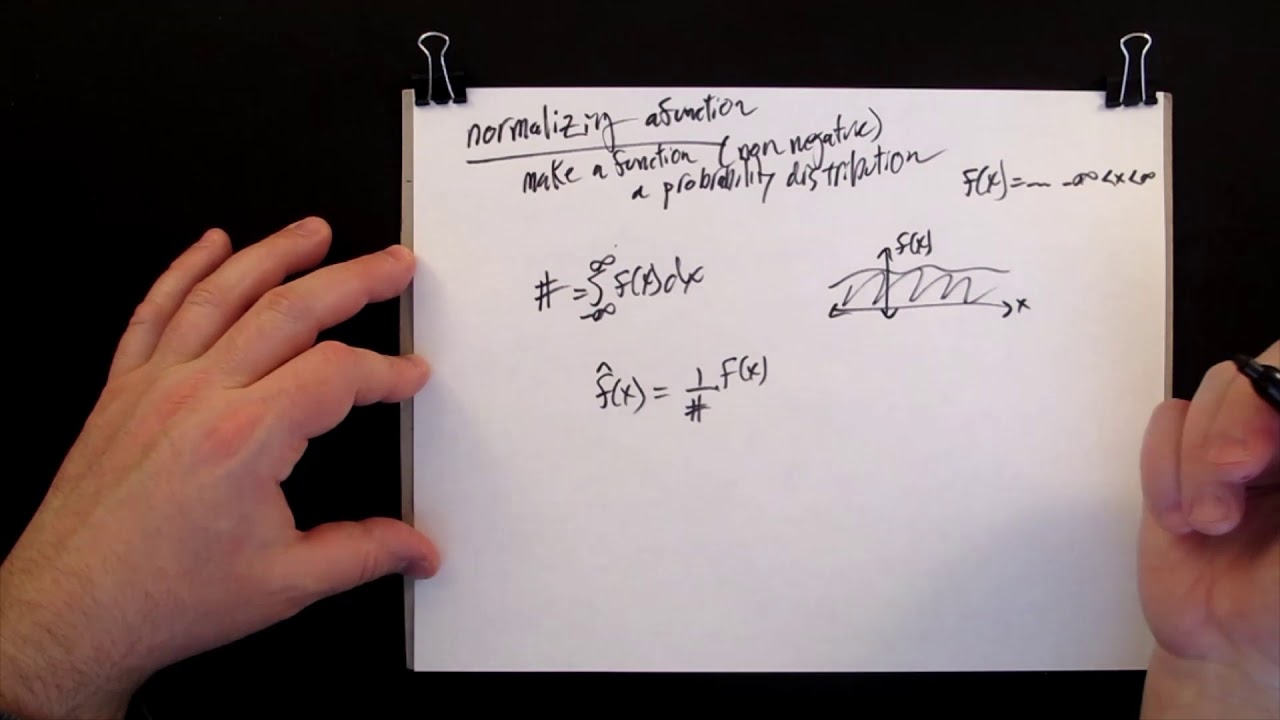 normalizing a function
make a function (non negative)
a probability distribution
f(x) = ... -∞ < x < ∞
f(x)
# = ∫_{-∞}^{∞} f(x) dx
x
f̂(x) = 1/# f(x)